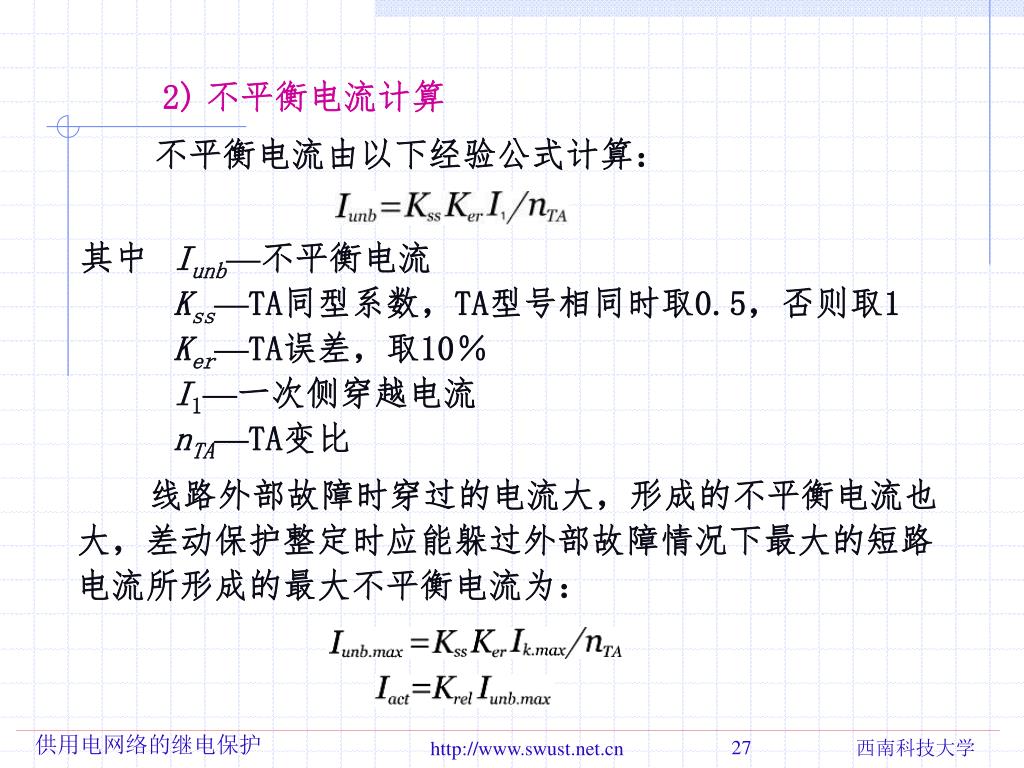 2) 不平衡电流计算
不平衡电流由以下经验公式计算：
I_unb=K_ss K_er I_1/n_TA
其中 I_unb—不平衡电流
K_ss—TA同型系数，TA型号相同时取0.5，否则取1
K_er—TA误差，取10%
I_1—一次侧穿越电流
n_TA—TA变比
线路外部故障时穿过的电流大，形成的不平衡电流也
大，差动保护整定时应能躲过外部故障情况下最大的短路
电流所形成的最大不平衡电流为：
I_unb.max=K_ss K_er I_k.max/n_TA
I_act=K_rel I_unb.max
供用电网络的继电保护 http://www.swust.net.cn 27 西南科技大学